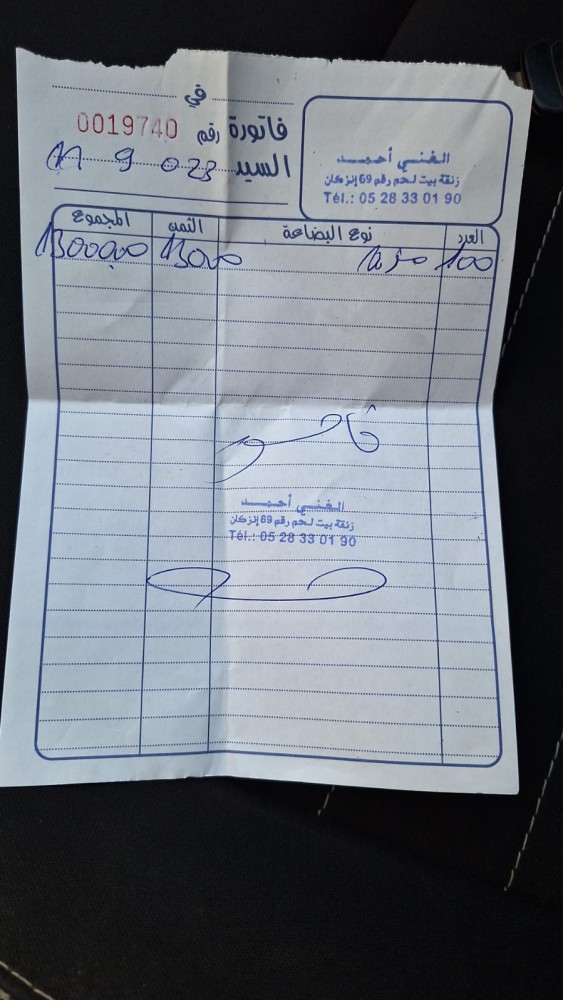 في
فاتورة رقم 0019740
السيد 11 9 023
الغني أحمد
زنقة بيت لحم رقم 69 إنزكان
Tél.: 05 28 33 01 90
العدد نوع البضاعة الثمن المجموع
100 13000 1300000
الغني أحمد
زنقة بيت لحم رقم 69 إنزكان
Tél.: 05 28 33 01 90